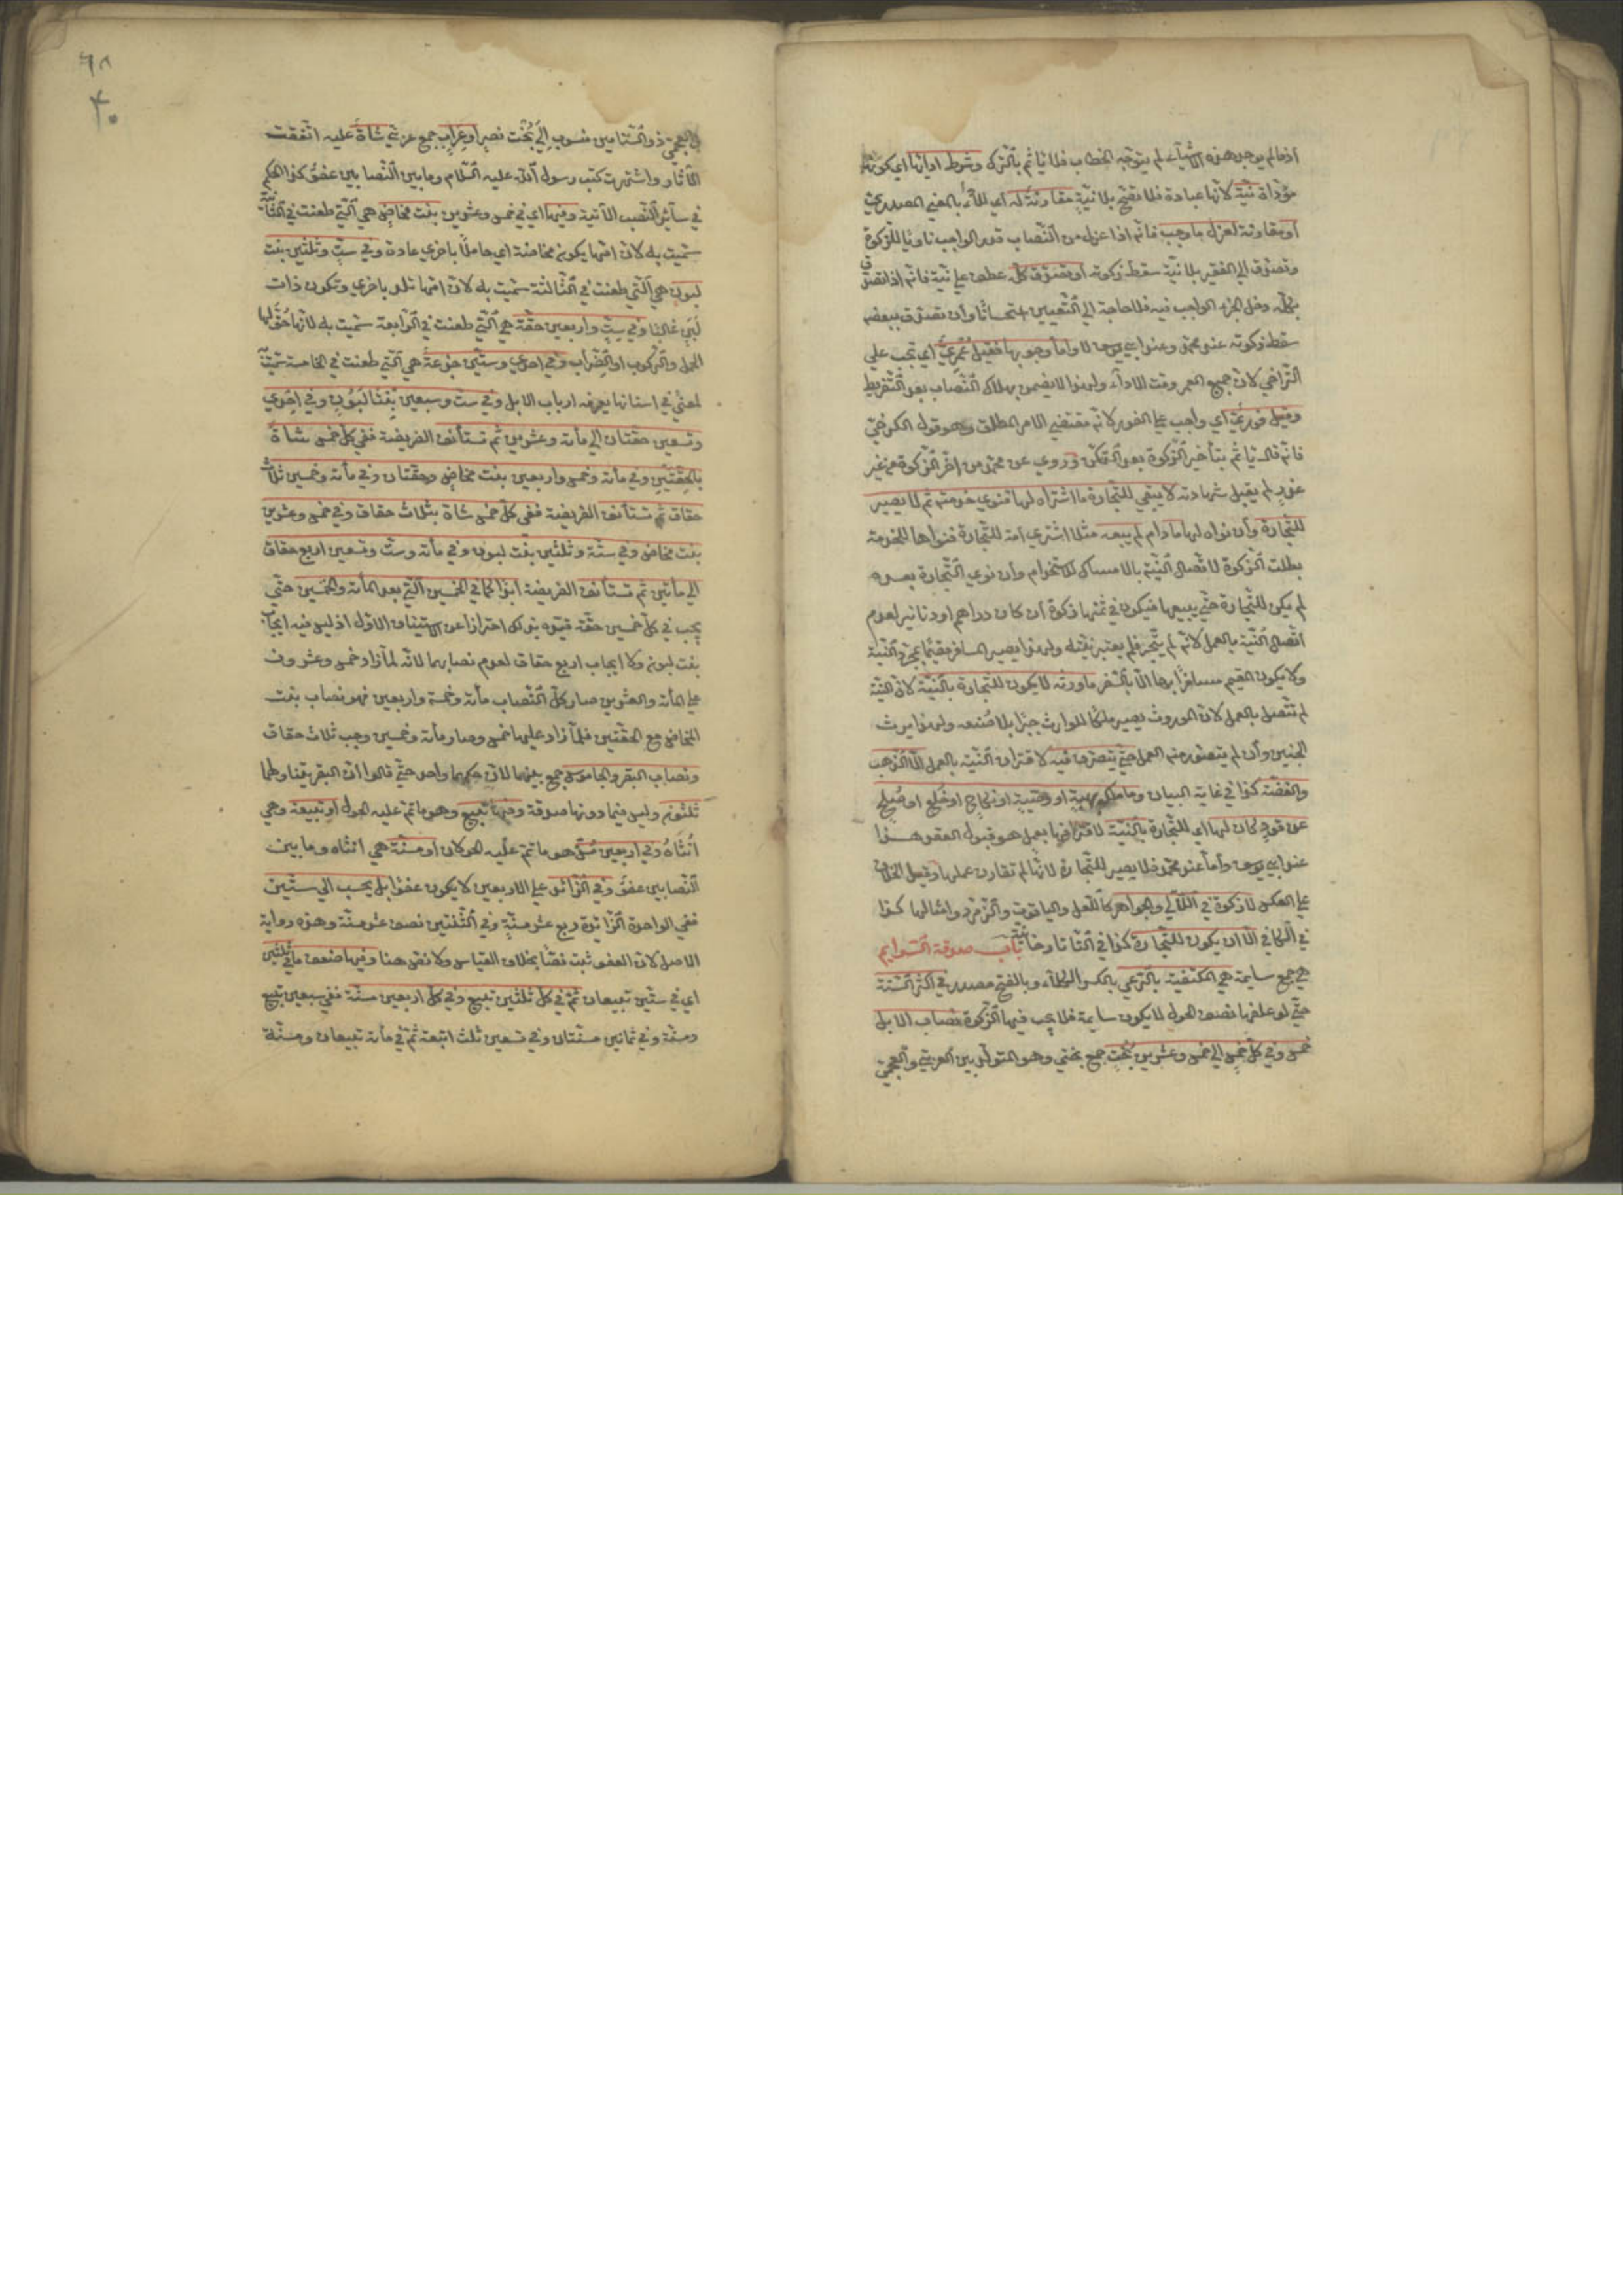 اذ ما لم يوجد هذه الاشياء لم يتوجه الخطاب فلا يأثم بالترك وشرط ادائها اي كونها
مؤداة نية لانها عبادة فلا تصح بلا نية مقارنة له اي للأداء بالمعنى المصدري
او مقارنة لعزل ما وجب فانه اذا عزل من النصاب قدر الواجب ناويا للزكوة
وتصدق الى الفقير بلا نية سقط زكوته او تصدق كله عطف على نية فانه اذا تصدق
بكله دخل الجزء الواجب فيه فلا حاجة الى التعيين استحسانا وان تصدق ببعضه
سقط زكوته عند محمد وعند ابي يوسف لا واما وجوبها فقيل عمري اي تجب على
التراخي لان جميع العمر وقت الاداء ولهذا لا يضمن بهلاك النصاب بعد التفريط
وقيل فوري اي واجب على الفور لانه مقتضى الامر المطلق وهو قول الكرخي
فانه قال يأثم بتأخير الزكوة بعد التمكن وروي عن محمد من اخر الزكوة من غير
عذر لم يقبل شهادته لا يبقى للتجارة ما اشتراه لها فنوى خدمته ثم لا يصير
للتجارة وان نواه لها ما دام لم يبعه مثلا اشترى امة للتجارة فنواها للخدمة
بطلت الزكوة لاتصال النية بالامساك للاستخدام وان نوى التجارة بعده
لم يكن للتجارة حتى يبيعها فيكون في ثمنها زكوة ان كان دراهم او دنانير لعدم
اتصال النية بالعمل لانه لم يتجر فلم يعتبر نيته ولهذا يصير المسافر مقيما بمجرد النية
ولا يكون المقيم مسافرا بها الا بالسفر ما ورثه لا يكون للتجارة بالنية لان النية
لم تتصل بالعمل لان الموروث يصير ملكا للوارث جبرا بلا صنعه ولهذا يرث
الجنين وان لم يتصور منه العمل حتى يتصرف فيه لاقتران النية بالعمل الا الذهب
والفضة كذا في غاية البيان وما ملكه بهبة او وصية او نكاح او خلع او صلح
عن قود كان لها اي للتجارة بالنية لاقترانها بعمل هو قبول العقد هذا
عند ابي يوسف واما عند محمد فلا يصير للتجارة لانها لم تقارن عملها وقيل الخلاف
على العكس لا زكوة في اللآلي والجواهر كاللعل والياقوت والزمرد وامثالها كذا
في الكافي الا ان يكون للتجارة كذا في التاتارخانية باب صدقة السوايم
هي جمع سايمة هي المكتفية بالرعي بالكسر الكلاء وبالفتح مصدر في اكثر السنة
حتى لو علفها نصف الحول لا يكون سايمة فلا يجب فيها الزكوة نصاب الابل
خمس وفي كل خمس الى خمس وعشرين بخت جمع بختي وهو المتولد بين العربي والعجمي
٦٨
٤٠
والعجمي ذو السنامين منسوب الى بخت نصر او عراب جمع عربي شاة عليه اتفقت
الآثار واشتهرت كتب رسول الله عليه السلام وما بين النصابين عفو كذا الحكم
في سائر النصب الآتية وفيها اي في خمس وعشرين بنت مخاض هي التي طعنت في الثانية
سميت به لان امها يكون مخاضة اي حاملا باخرى عادة وفي ست وثلثين بنت
لبون هي التي طعنت في الثالثة سميت به لان امها تلد باخرى وتكون ذات
لبن غالبا وفي ست واربعين حقة هي التي طعنت في الرابعة سميت به لانها حق لها
الحمل والركوب او الضراب وفي احدى وستين جذعة هي التي طعنت في الخامسة سميت
لمعنى في اسنانها يعرفه ارباب الابل وفي ست وسبعين بنتا لبون وفي احدى
وتسعين حقتان الى مأة وعشرين ثم تستأنف الفريضة ففي كل خمس شاة
بالحقتين وفي مأة وخمس واربعين بنت مخاض وحقتان وفي مأة وخمسين ثلاث
حقاق ثم تستأنف الفريضة ففي كل خمس شاة بثلاث حقاق وفي خمس وعشرين
بنت مخاض وفي ستة وثلثين بنت لبون وفي مأة وست وتسعين اربع حقاق
الى مأتين ثم تستأنف الفريضة ابدا كما في الخمسين التي بعد المأة والخمسين حتى
يجب في كل خمسين حقة قيده بذلك احترازا عن الاستيناف الاول اذ ليس فيه ايجاب
بنت لبون ولا ايجاب اربع حقاق لعدم نصابهما لانه لما زاد خمس وعشرون
على المأة والعشرين صار كل النصاب مأة وخمسة واربعين فهو نصاب بنت
المخاض مع الحقتين فلما زاد عليها خمس وصار مأة وخمسين وجب ثلاث حقاق
ونصاب البقر والجاموس جمع بينهما لان حكمهما واحد حتى قالوا ان البقر يتناولهما
ثلثون وليس فيما دونها صدقة وفيها تبيع وهو ما تم عليه الحول او تبيعة وهي
انثاه وفي اربعين مسن هو ما تم عليه الحولان او مسنة هي انثاه وما بين
النصابين عفو وفي الزائد على الاربعين لا يكون عفوا بل يحسب الى ستين
ففي الواحدة الزائدة ربع عشر مسنة وفي الثنتين نصف عشر مسنة وهذه رواية
الاصل لان العفو ثبت نصا بخلاف القياس ولا نص هنا وفيها ضعف ما في ثلثين
اي في ستين تبيعان ثم في كل ثلثين تبيع وفي كل اربعين مسنة ففي سبعين تبيع
ومسنة وفي ثمانين مسنتان وفي تسعين ثلث اتبعة ثم في مأة تبيعان ومسنة